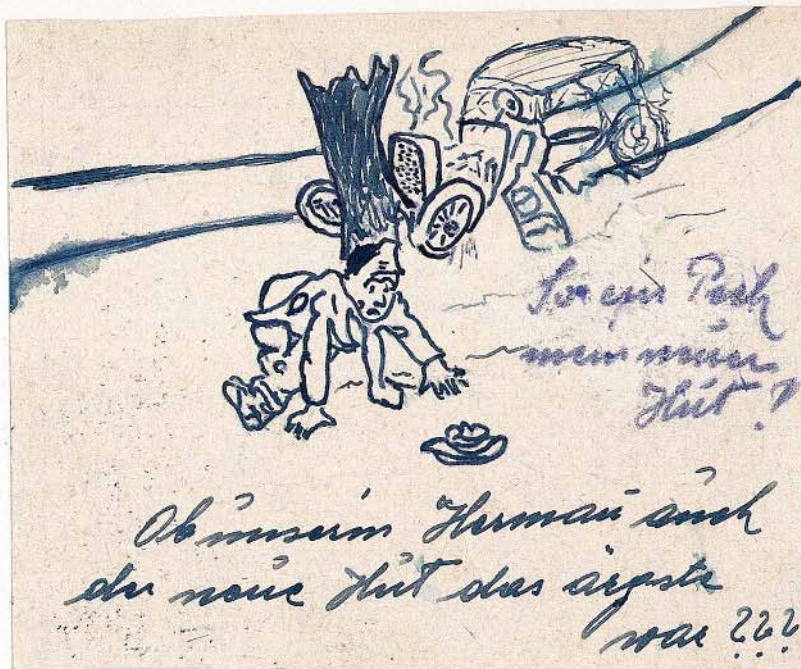 So ein Pech
mein neuer
Hut!
Ob unserm Herman auch
der neue Hut das ärgste
war ???